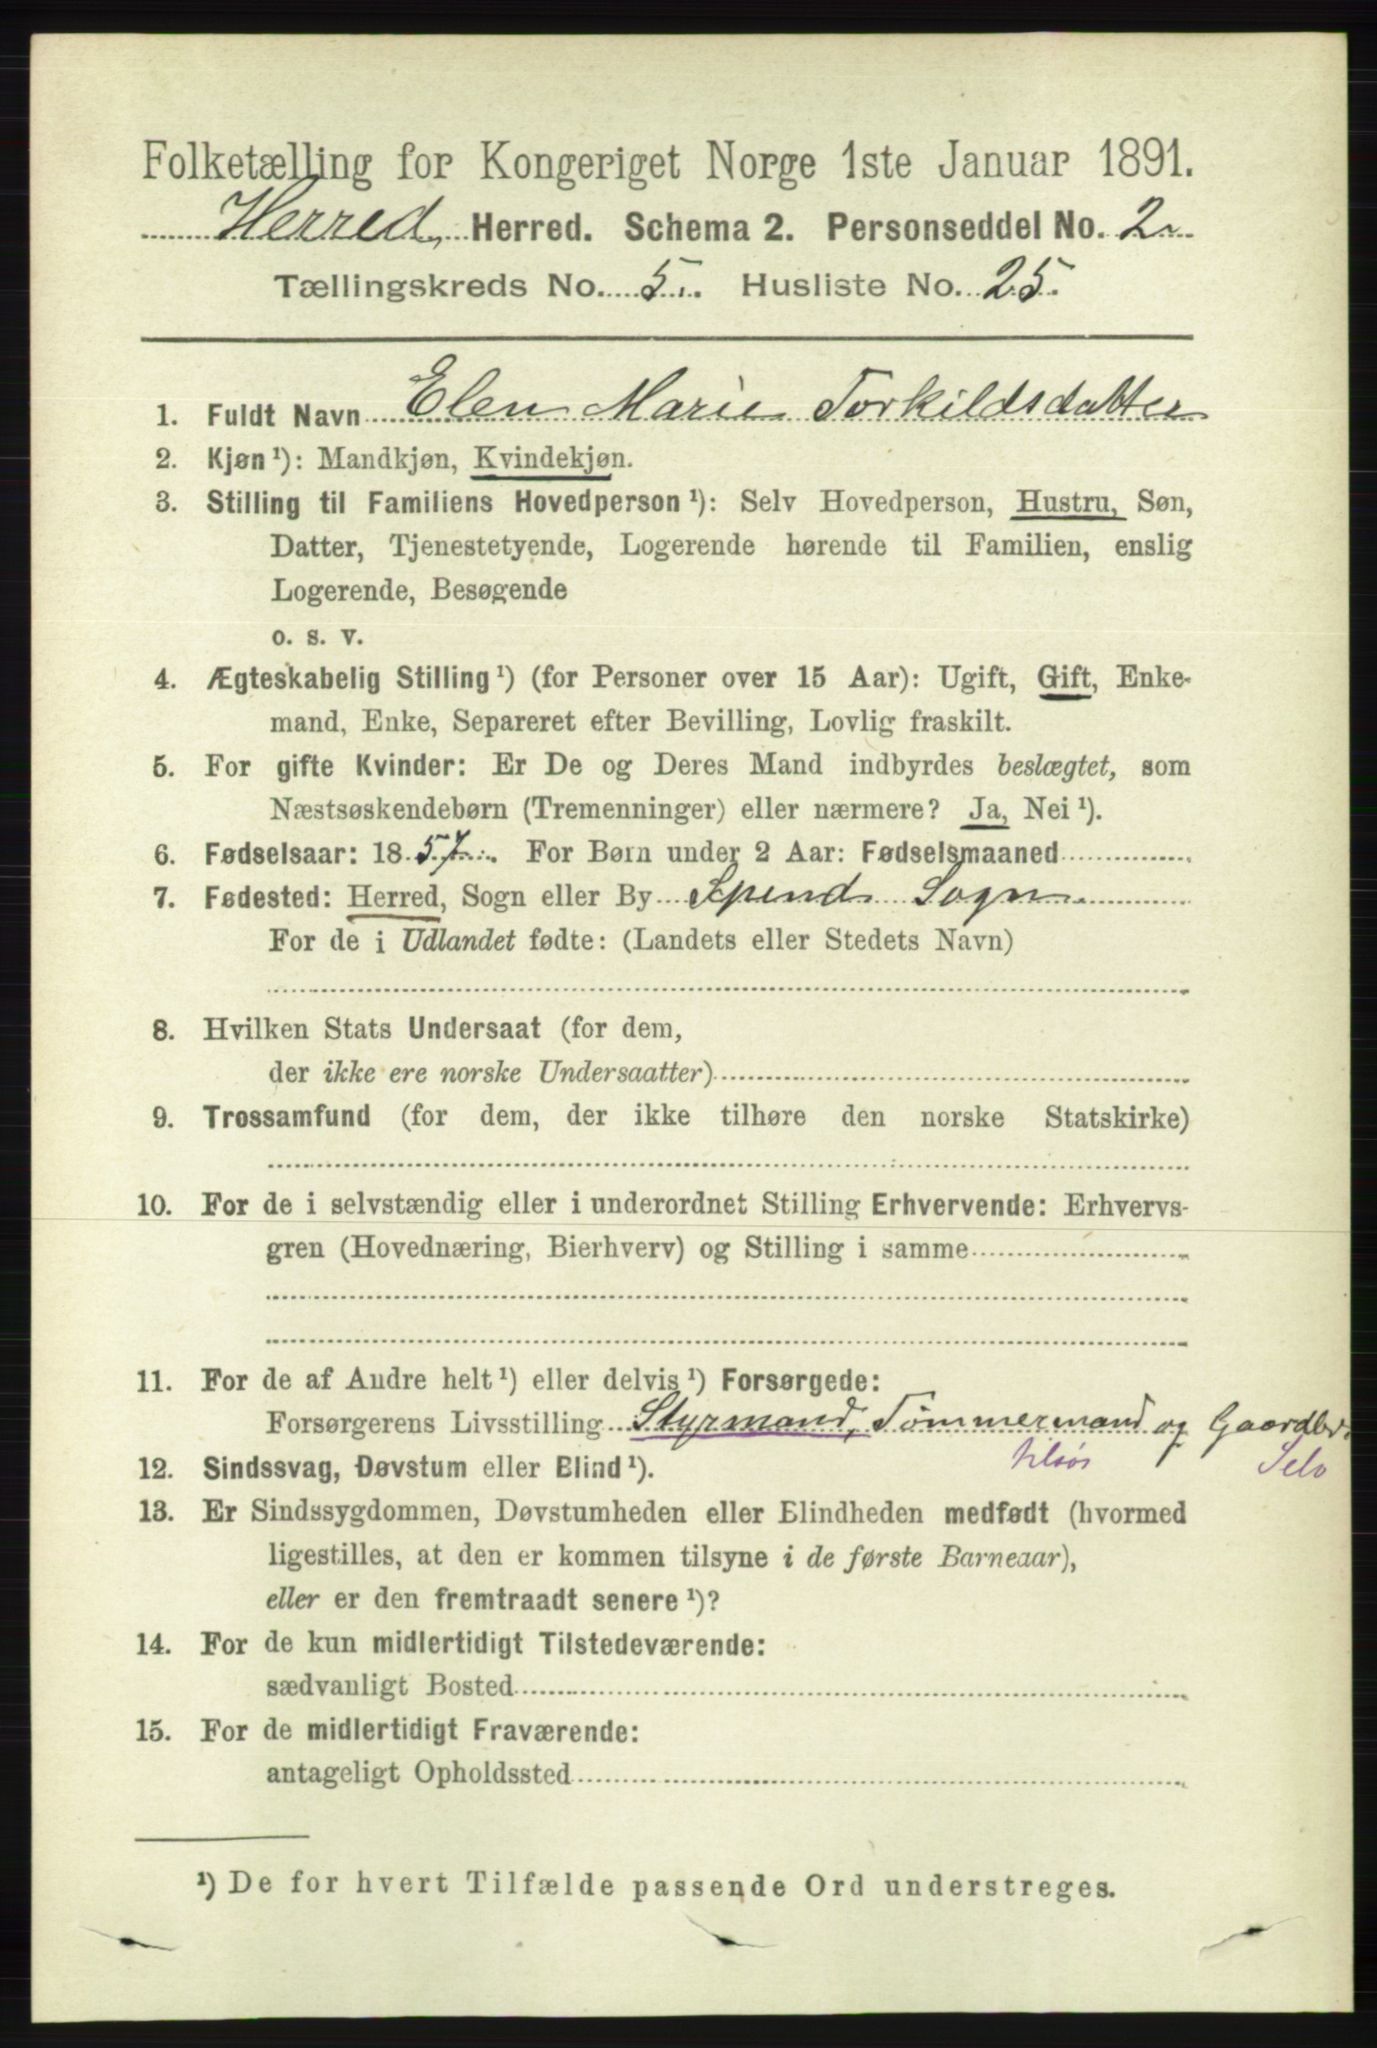 Folketælling for Kongeriget Norge 1ste Januar 1891.
Herred, Herred. Schema 2. Personseddel No. 2.
Tællingskreds No. 5. Husliste No. 25.
1. Fuldt Navn Elen Marie Torkildsdatter
2. Kjøn¹): Mandkjøn, Kvindekjøn.
3. Stilling til Familiens Hovedperson¹): Selv Hovedperson, Hustru, Søn,
Datter, Tjenestetyende, Logerende hørende til Familien, enslig
Logerende, Besøgende
o. s. v.
4. Ægteskabelig Stilling¹) (for Personer over 15 Aar): Ugift, Gift, Enke-
mand, Enke, Separeret efter Bevilling, Lovlig fraskilt.
5. For gifte Kvinder: Er De og Deres Mand indbyrdes beslægtet, som
Næstsøskendebørn (Tremenninger) eller nærmere? Ja, Nei¹).
6. Fødselsaar: 1857. For Børn under 2 Aar: Fødselsmaaned
7. Fødested: Herred, Sogn eller By Spind Sogn
For de i Udlandet fødte: (Landets eller Stedets Navn)
8. Hvilken Stats Undersaat (for dem,
der ikke ere norske Undersaatter)
9. Trossamfund (for dem, der ikke tilhøre den norske Statskirke)
10. For de i selvstændig eller i underordnet Stilling Erhvervende: Erhvervs-
gren (Hovednæring, Bierhverv) og Stilling i samme
11. For de af Andre helt¹) eller delvis¹) Forsørgede:
Forsørgerens Livsstilling Styrmand, Tømmermand og Gaardbr.
tilsøs Selv
12. Sindssvag, Døvstum eller Blind¹).
13. Er Sindssygdommen, Døvstumheden eller Blindheden medfødt (hvormed
ligestilles, at den er kommen tilsyne i de første Barneaar),
eller er den fremtraadt senere¹)?
14. For de kun midlertidigt Tilstedeværende:
sædvanligt Bosted
15. For de midlertidigt Fraværende:
antageligt Opholdssted
¹) De for hvert Tilfælde passende Ord understreges.